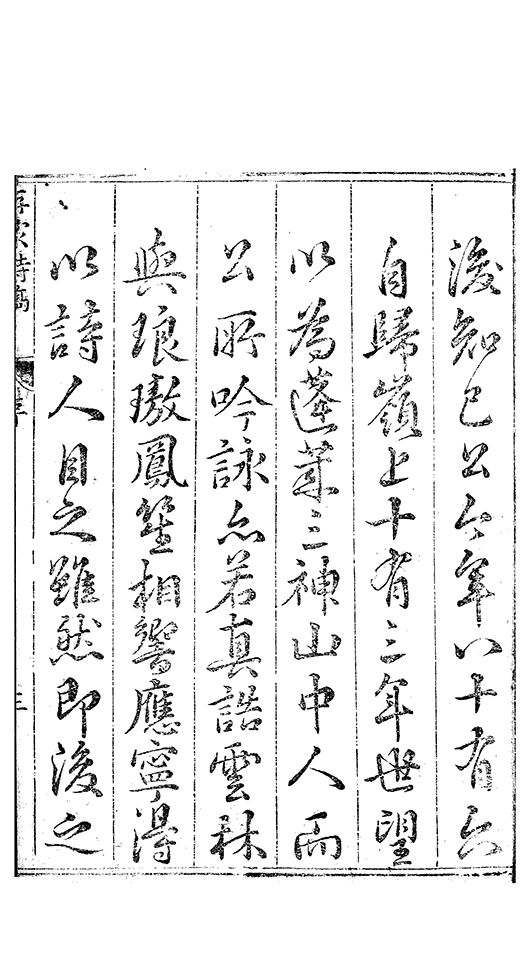 後知己公今年八十有六
自歸嶺上十有三年世望
以為蓬萊三神山中人而
公所吟詠亦若真誥雲林
與琅璈鳳笙相響應寧得
以詩人目之雖然即後之
存家詩稿 序 三